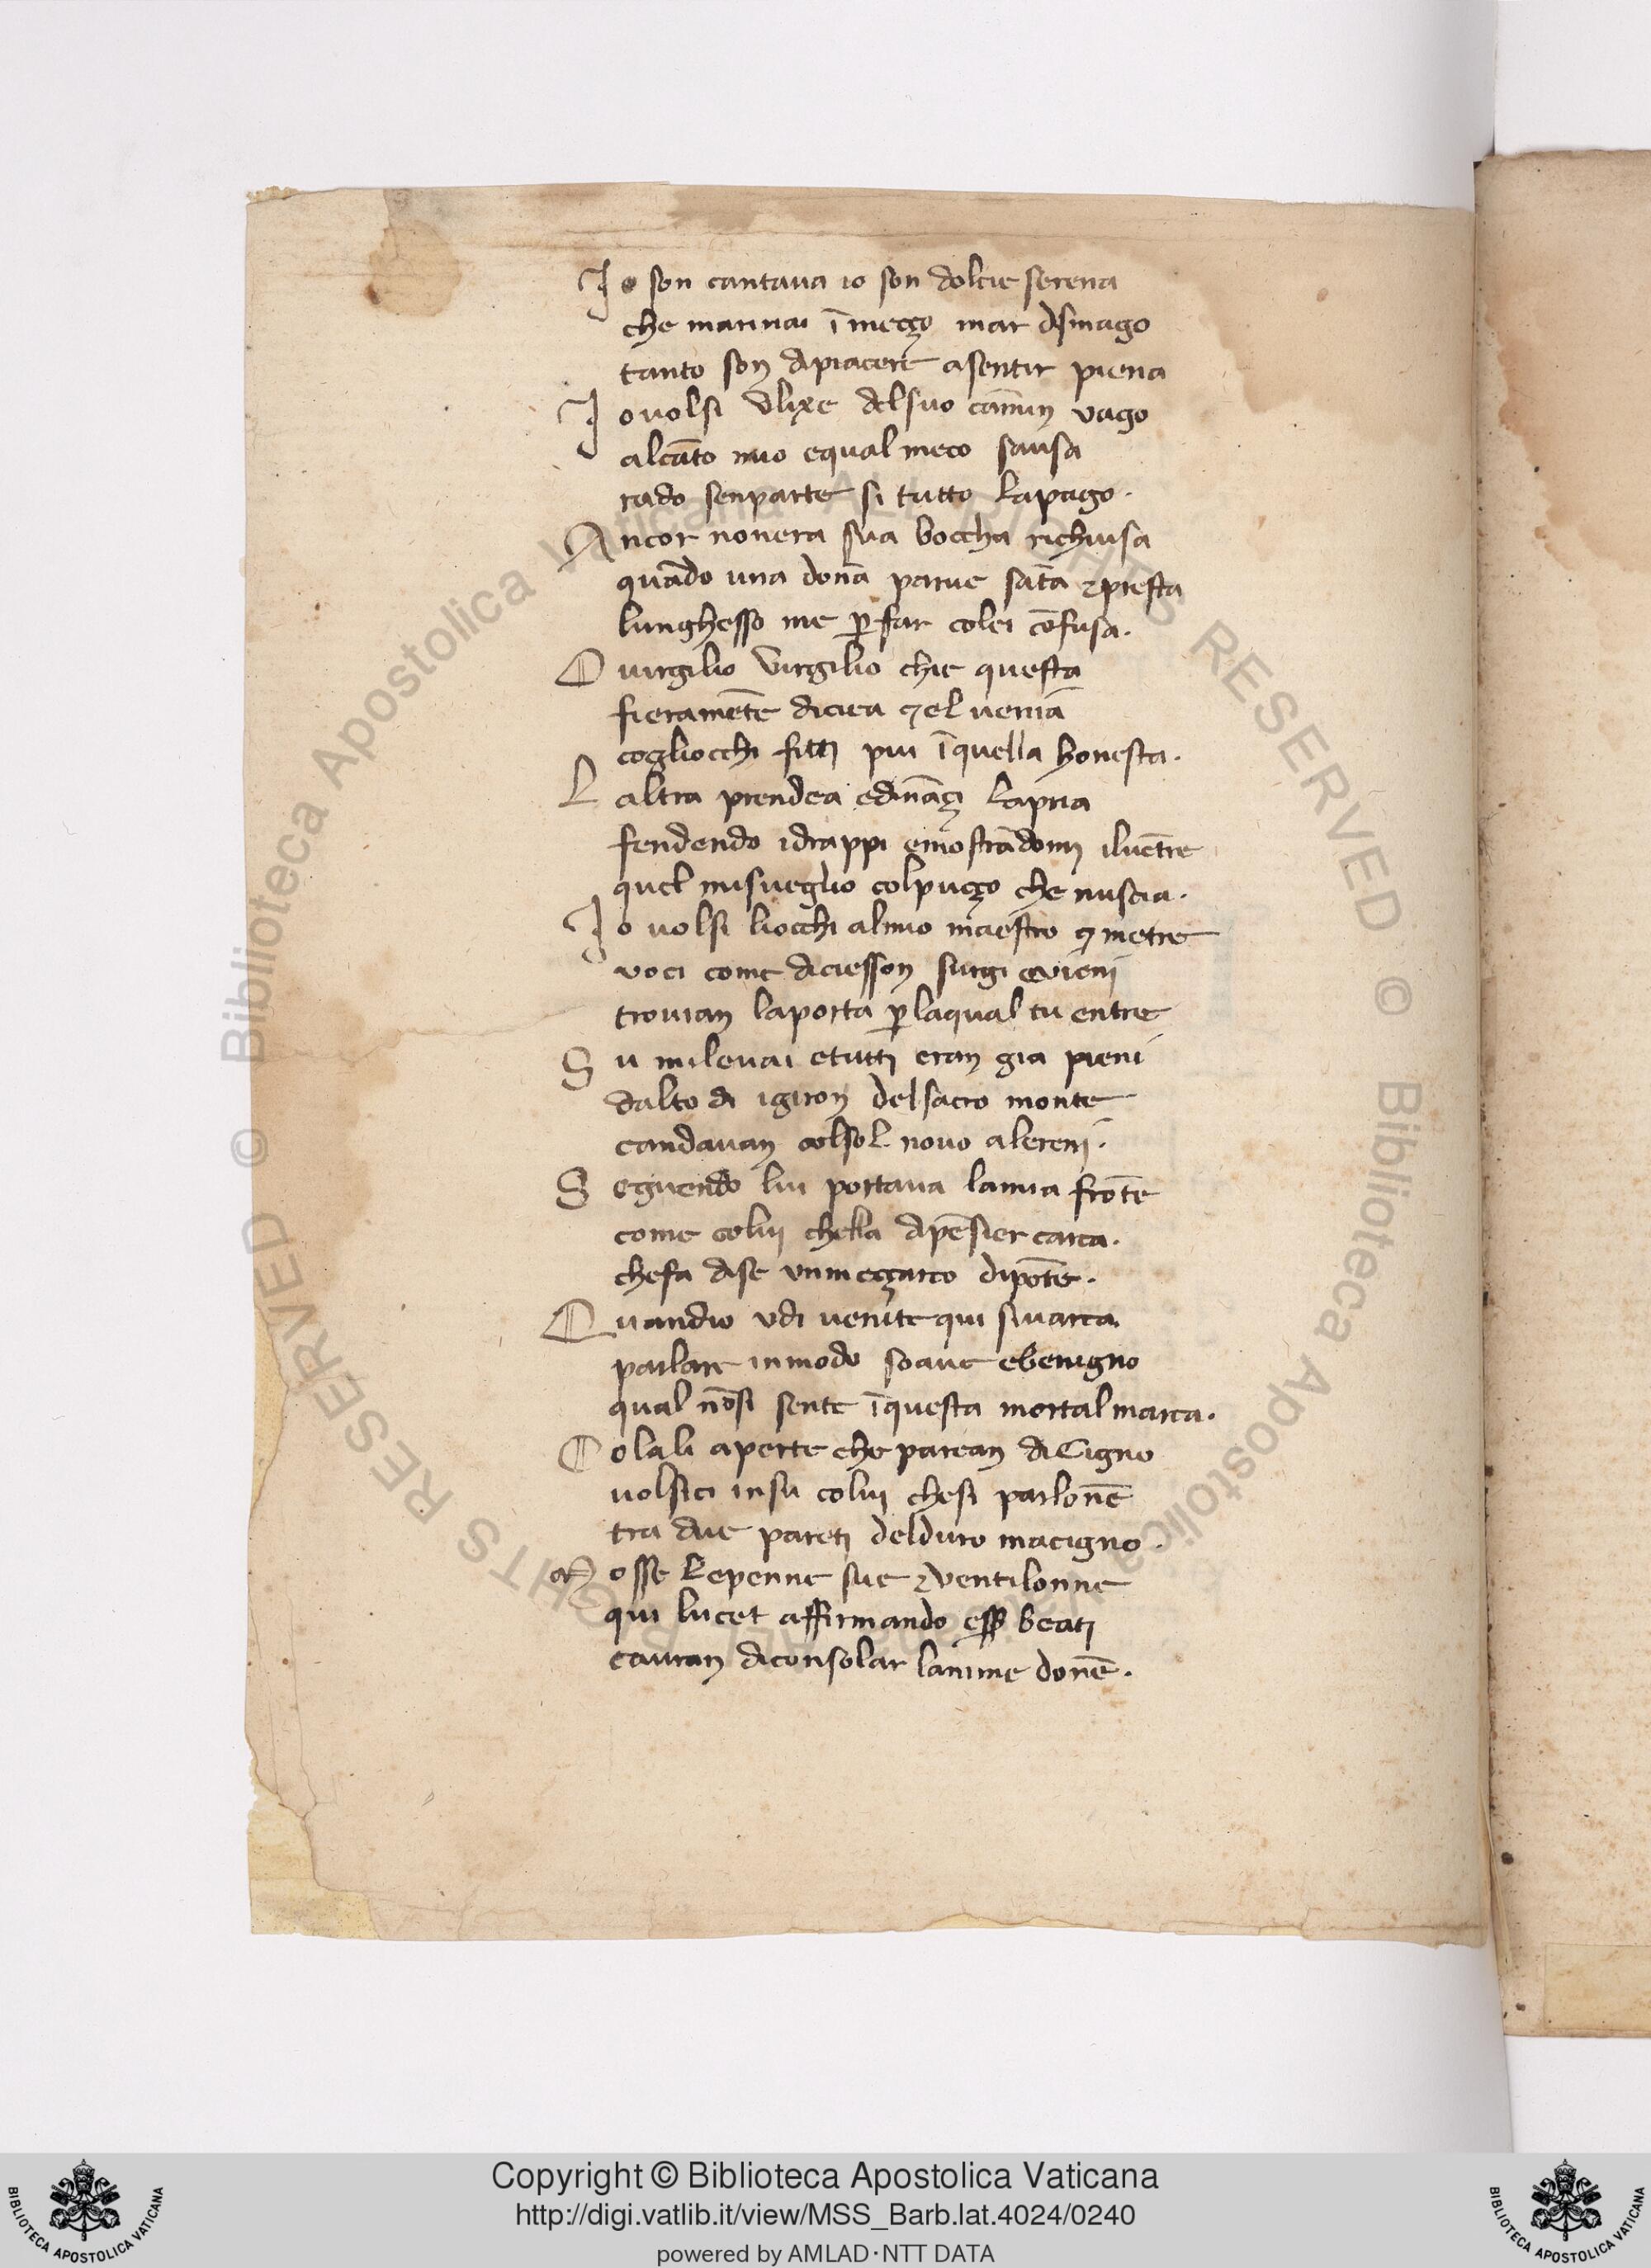 Io son cantaua io son dolcie serena
che marinai ī meçço mar dismago
tanto son dipiacere asentir piena
Io uolsi Vlixe delsuo cāmin vago
alcāto mio equal meco sausa
rado senparte si tutto lapago.
Ancor nonera sua boccha richiusa
quādo una donā parue sāta ⁊presta
lunghesso me ꝑfar colei cōfusa.
O uirgilio Virgilio chie questa
fieramēte diciea ⁊el ueniā
cogliocchi fitti pur īquella honesta.
Laltra prendea edināçi lapria
fendendo idrappi emostrādomi iluētre
quel misueglio colpuçço che nuscia.
Io uolsi liocchi almio maestro ⁊ metre
voci come diciesson surgi euieni
trouian laporta ꝑlaqual tu entre
Su mileuai etutti eran gia pieni
dalto di igiron delsacro monte
eandauan colsol nouo alereni.
Seguendo lui portaua lamia frōte
come colui chella dipēsier carca.
chefa dise vnmeççarco dipōte.
Quandio vdi uenite qui siuarca
parlare inmodo soaue ebenigno
qual nōsi sente īquesta mortal marca.
Colali aperte che parean diCigno
uolsici insu colui chesi parlonē
tra due pareti delduro macigno.
Mosse lepenne sue ⁊ventilonne
qui lucet affirmando esser beati
cauran diconsolar lanime donē.
Copyright © Biblioteca Apostolica Vaticana
http://digi.vatlib.it/view/MSS_Barb.lat.4024/0240
powered by AMLAD·NTT DATA
BIBLIOTECA APOSTOLICA VATICANA
BIBLIOTECA APOSTOLICA VATICANA
© Biblioteca Apostolica Vaticana ALL RIGHTS RESERVED
© Biblioteca Apostolica Vaticana ALL RIGHTS RESERVED